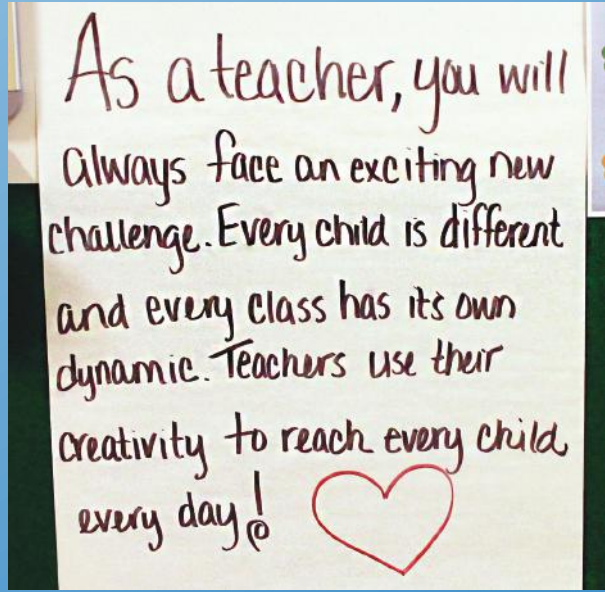 As a teacher, you will
always face an exciting new
challenge. Every child is different
and every class has its own
dynamic. Teachers use their
creativity to reach every child,
every day!